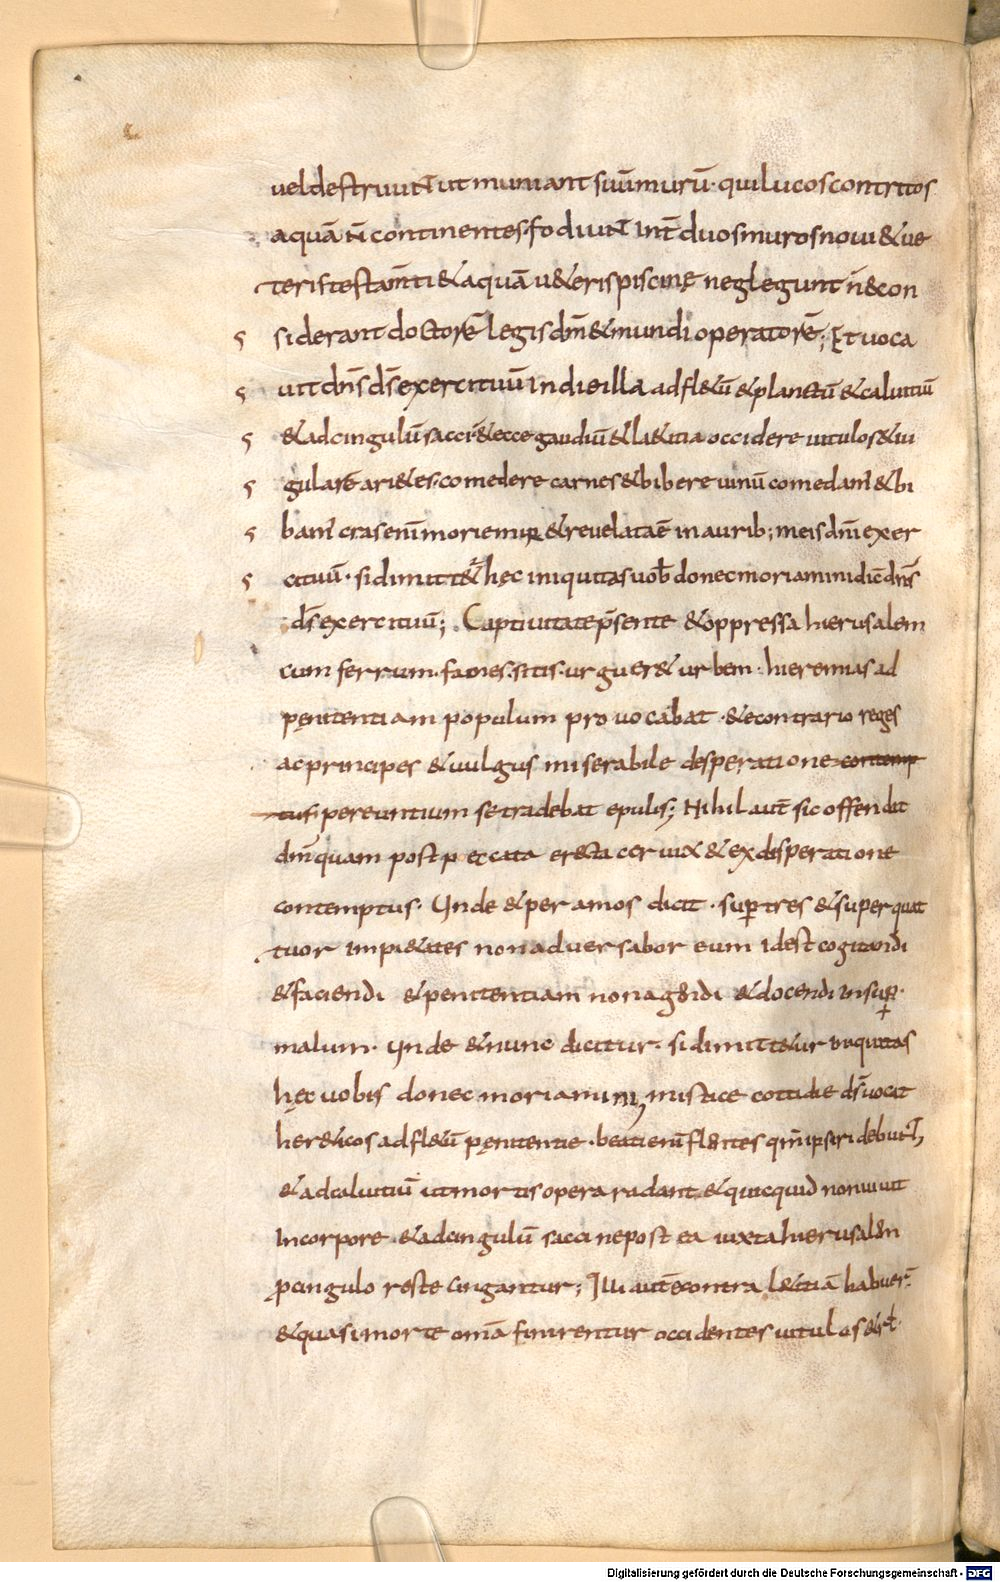 ueldestruunt ut muniant suū murū· qui lucos contritos
aquā ñ continentes· fodiunt int̄ duos muros noui & ue
teris testam̄ti & aquā u&eris piscinę neglegunt ñ & con
siderant doctorē legis dm̄ & mundi operatorē; Et uoca
uit dn̄s ds̄ exercituū in die illa ad fl&ū & planctū & caluitiū
& ad cingulū sacci & ecce gaudiū & l&itia occidere uitulos & iu
gulare ari&es· comedere carnes & bibere uinū comedam' & bi
bam' cras enī moriemur & reuelata ē in aurib; meis dn̄i exer
cituū· si dimitt&ur hęc iniquitas uob̄ donec moriamini dic̄ dn̄s
ds̄ exercituū; Captiuitate p̄sente & oppressa hierusalem
cum ferrum· fames· sitis· urguer& urbem· hieremias ad
pęnitentiam populum prouocabat· & econtrario reges
ac principes & uulgus miserabile desperatione contemp
tus pereuntium se tradebat epulis; Nihil aut̄ sic offendit
dm̄ quam post peccata er&ta ceruix & ex desperatione
contemptus· Unde & per amos dicit· super tres & super quat
tuor impi&ates non aduersabor eum id est cogitandi
& faciendi & penitentiam non agendi & docendi insup̱·
malum· Unde & nunc dicitur· si dimitt&ur iniquitas
hęc uobis donec moriamini; mistice cottidie ds̄ uocat
her&icos ad fl&ū pęnitentie· beati enī flentes qm̄ ipsi ridebunt;
& ad caluitiū ut mortis opera radant & quicquid non uiuit
in corpore & ad cingulū sacci ne post ea iuxta hierusalem
p cingulo reste cingantur; Illi aut̄ econtra l&itiā habuer̄·
& quasi morte om̄a finirentur occidentes uitulos &